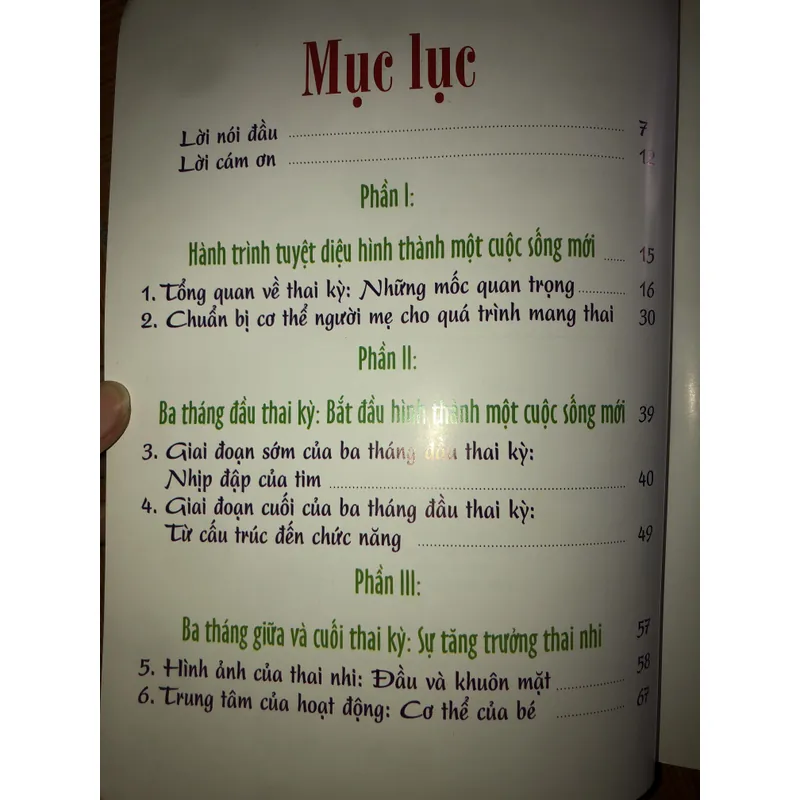 Mục lục
Lời nói đầu ........ 7
Lời cám ơn ........ 12
Phần I:
Hành trình tuyệt diệu hình thành một cuộc sống mới ...... 15
1. Tổng quan về thai kỳ: Những mốc quan trọng ........ 16
2. Chuẩn bị cơ thể người mẹ cho quá trình mang thai 30
Phần II:
Ba tháng đầu thai kỳ: Bắt đầu hình thành một cuộc sống mới 39
3. Giai đoạn sớm của ba tháng đầu thai kỳ:
Nhịp đập của tim ........ 40
4. Giai đoạn cuối của ba tháng đầu thai kỳ:
Từ cấu trúc đến chức năng ........ 49
Phần III:
Ba tháng giữa và cuối thai kỳ: Sự tăng trưởng thai nhi 57
5. Hình ảnh của thai nhi: Đầu và khuôn mặt ........ 58
6. Trung tâm của hoạt động: Cơ thể của bé ........ 67